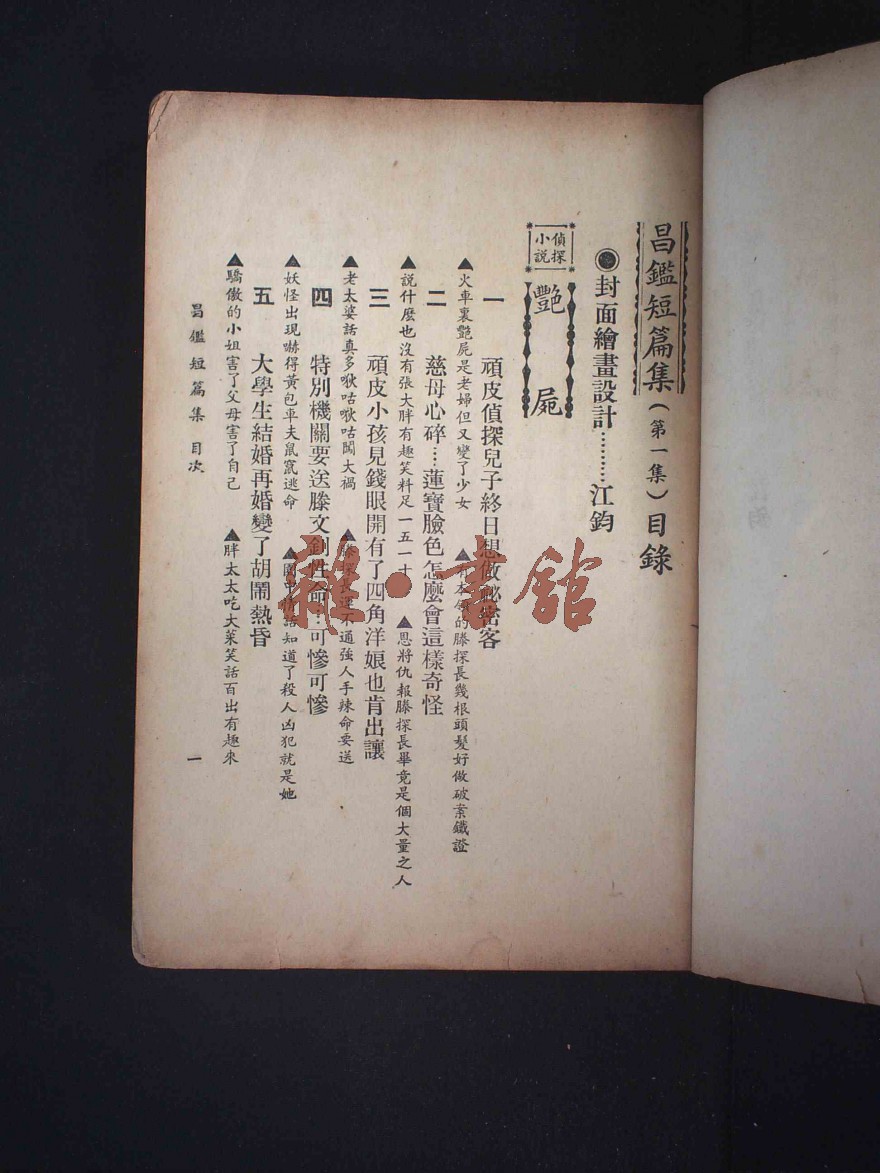 昌鑑短篇集(第一集)目錄
◉封面繪畫設計………江鈞
偵探小說
豔屍
一 頑皮偵探兒子終日想做祕密客
▲火車裏豔屍是老婦但又變了少女 ▲有本領的滕探長幾根頭髮好做破案鐵證
二 慈母心碎…蓮寶臉色怎麼會這樣奇怪
▲說什麼也沒有張大胖有趣笑料足一五一十 ▲恩將仇報滕探長畢竟是個大量之人
三 頑皮小孩見錢眼開有了四角洋娘也肯出讓
▲老太婆話真多啾咕啾咕闖大禍 ▲滕探長運不通強人手辣命要送
四 特別機關要送滕文釗性命…可慘可慘
▲妖怪出現嚇得黃包車夫鼠竄逃命 ▲閨中情話知道了殺人凶犯就是她
五 大學生結婚再婚變了胡鬧熱昏
▲驕傲的小姐害了父母害了自己 ▲胖太太吃大菜笑話百出有趣來
昌鑑短篇集 目次
一
雜·書館